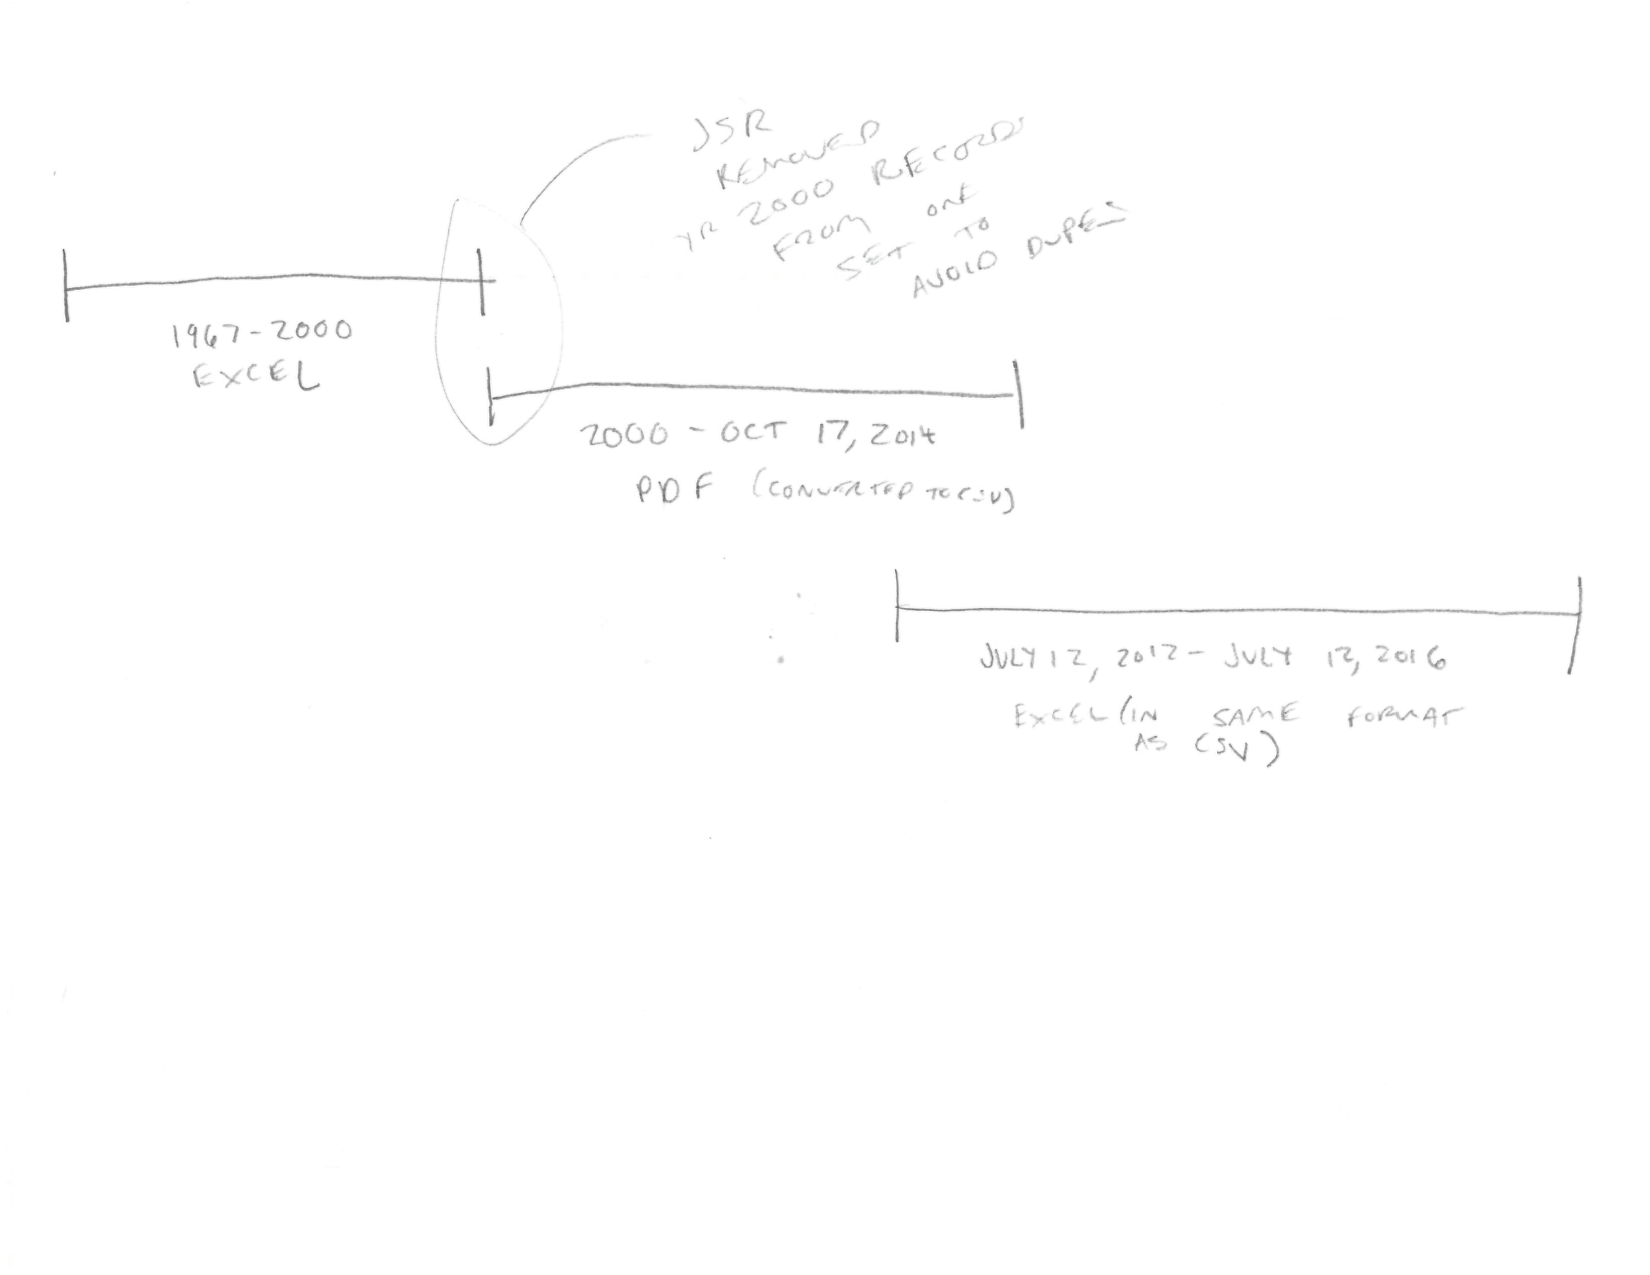 JSR
REMOVED
YR 2000 RECORDS
FROM ONE
SET TO
AVOID DUPES
1967-2000
EXCEL
2000 - OCT 17, 2014
PDF (CONVERTED TO CSV)
JULY 12, 2012 - JULY 12, 2016
EXCEL (IN SAME FORMAT
AS CSV)